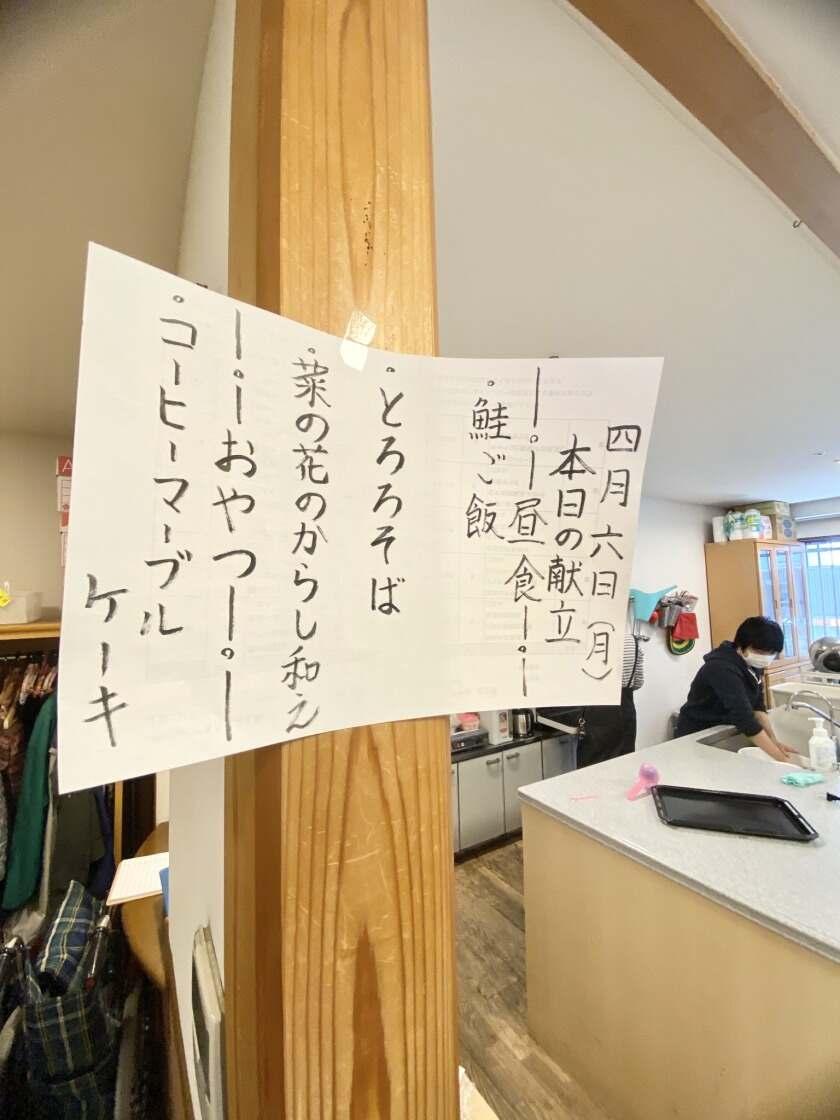 四月六日(月)
本日の献立
ー。ー昼食ー。ー
・鮭ご飯
・とろろそば
・菜の花のからし和え
ー。ーおやつー。ー
・コーヒーマーブル
ケーキ